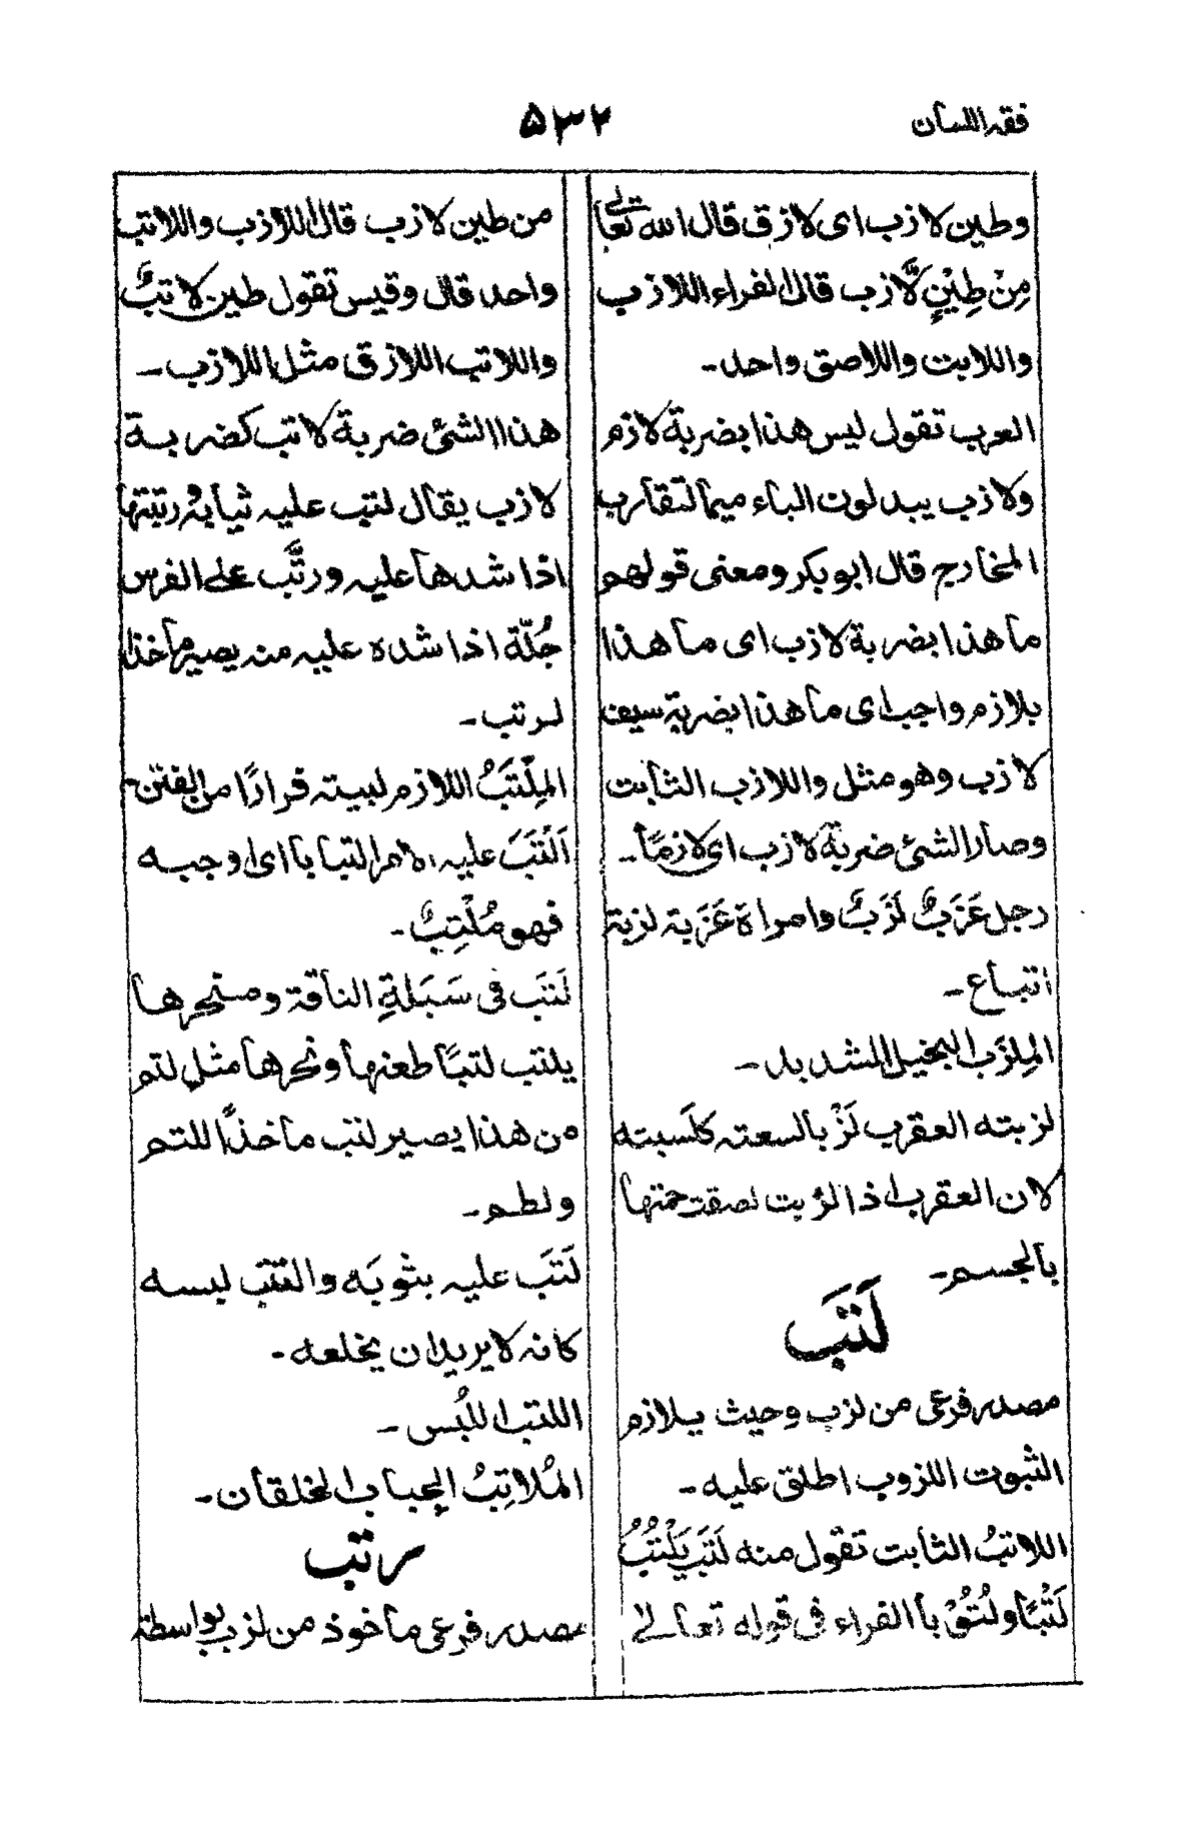 فقہ اللسان
۵۳۲
وطین لازب ای لازق قال اللہ تعالےٰ
مِنْ طِیْنٍ لَّازب قال الفراء اللازب
واللابت واللاصق واحد۔
العرب تقول لیس ھذا بضربة لازم
ولازب یبدلون الباء میما لتقارب
المخارج قال ابوبکر ومعنی قولھم
ما ھذا بضربة لازب ای ما ھذا
بلازم واجب ای ما ھذا بضربة سیف
لازب وھو مثل واللازب الثابت
وصار الشیٔ ضربة لازب ای لازمًا۔
رجل عَزَبٌ لَزَبٌ وامراة عَزَبة لزبة
اتباع۔
المِلزَب البخیل الشدید۔
لزبته العقرب لَزْبا لسعتہ کلَسبته
لان العقرب اذا لزبت لصقت حمتھا
بالجسم۔
لَتَبَ
مصدر فرعی من لزب وحیث یلازم
الثبوت اللزوب اطلق علیه۔
اللاتبُ الثابت تقول منه لَتَبَ یَلْتُبُ
لَتْبًا ولُتُوْبا الفراء فی قوله تعالےٰ
من طین لازب قال اللازب واللاتب
واحد قال وقیس تقول طین لاتبٌ
واللاتب اللازق مثل اللازب۔
ھذا الشیٔ ضربة لاتب کضربة
لازب یقال لتب علیہ ثیابہٗ ورتبتھا
اذا شدھا علیہ ورتَّب علی الفرس
جُلّة اذا شدہ علیہ منہ یصیر ماخذا
لرتب۔
المِلْتَبُ اللازم لبیتہ فرارًا من الفتن۔
اَلْتَبَ علیہ الامر التبابا ای اوجبه
فھو مُلْتِبٌ۔
لَتَبَ فی سَبَلةِ الناقة ومنحرھا
یلتب لتبًا طعنھا ونحرھا مثل لتم
من ھذا یصیر لتب ماخذًا للتم
ولطم۔
لَتَبَ علیہ بثوبَه والتتب لبسه
کانہ لا یرید ان یخلعه۔
اللتب اللُبس۔
المُلاتِبُ الجباب الخلقان۔
رتب
مصدر فرعی ماخوذ من لزب بواسطة